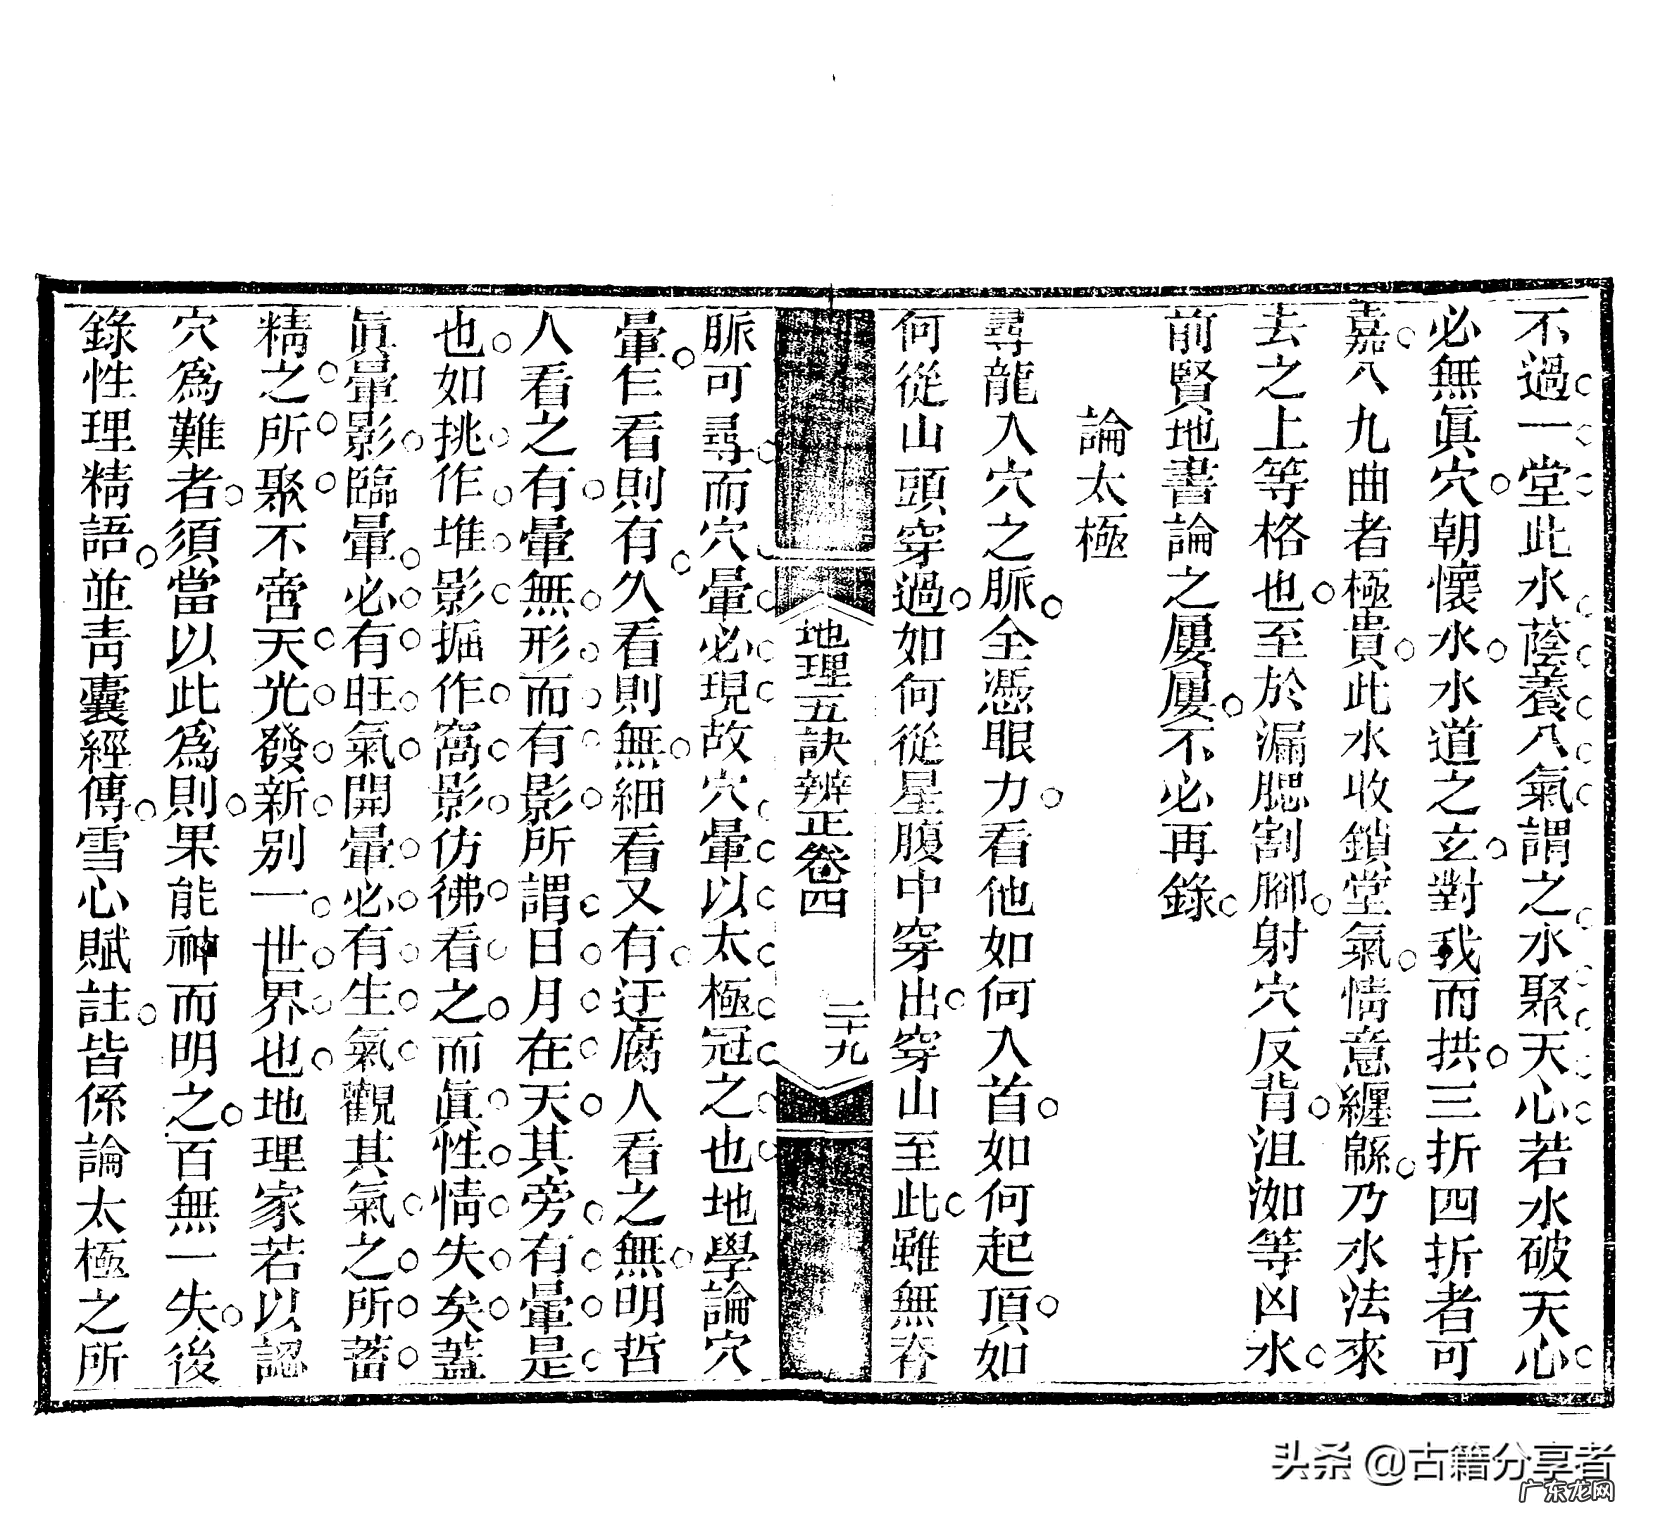 不過一堂此水蔭養八氣謂之水聚天心若水破天心
必無眞穴朝懷水水道之玄對我而拱三折四折者可
嘉八九曲者極貴此水收鎖堂氣情意纏綿乃水法來
去之上等格也至於漏腮割腳射穴反背沮洳等凶水
前賢地書論之屢屢不必再錄
論太極
尋龍入穴之脈全憑眼力看他如何入首如何起頂如
何從山頭穿過如何從星腹中穿出穿山至此雖無脊
地理五訣辨正卷四
二十九
脈可尋而穴暈必現故穴暈以太極冠之也地學論穴
暈乍看則有久看則無細看又有迂腐人看之無明哲
人看之有暈無形而有影所謂日月在天其旁有暈是
也如挑作堆影掘作窩影仿彿看之而眞性情失矣蓋
眞暈影臨暈必有旺氣開暈必有生氣觀其氣之所蓄
精之所聚不啻天光發新別一世界也地理家若以認
穴爲難者須當以此爲則果能神而明之百無一失後
錄性理精語並靑囊經傳雪心賦註皆係論太極之所
头条 @古籍分享者
广东龙网